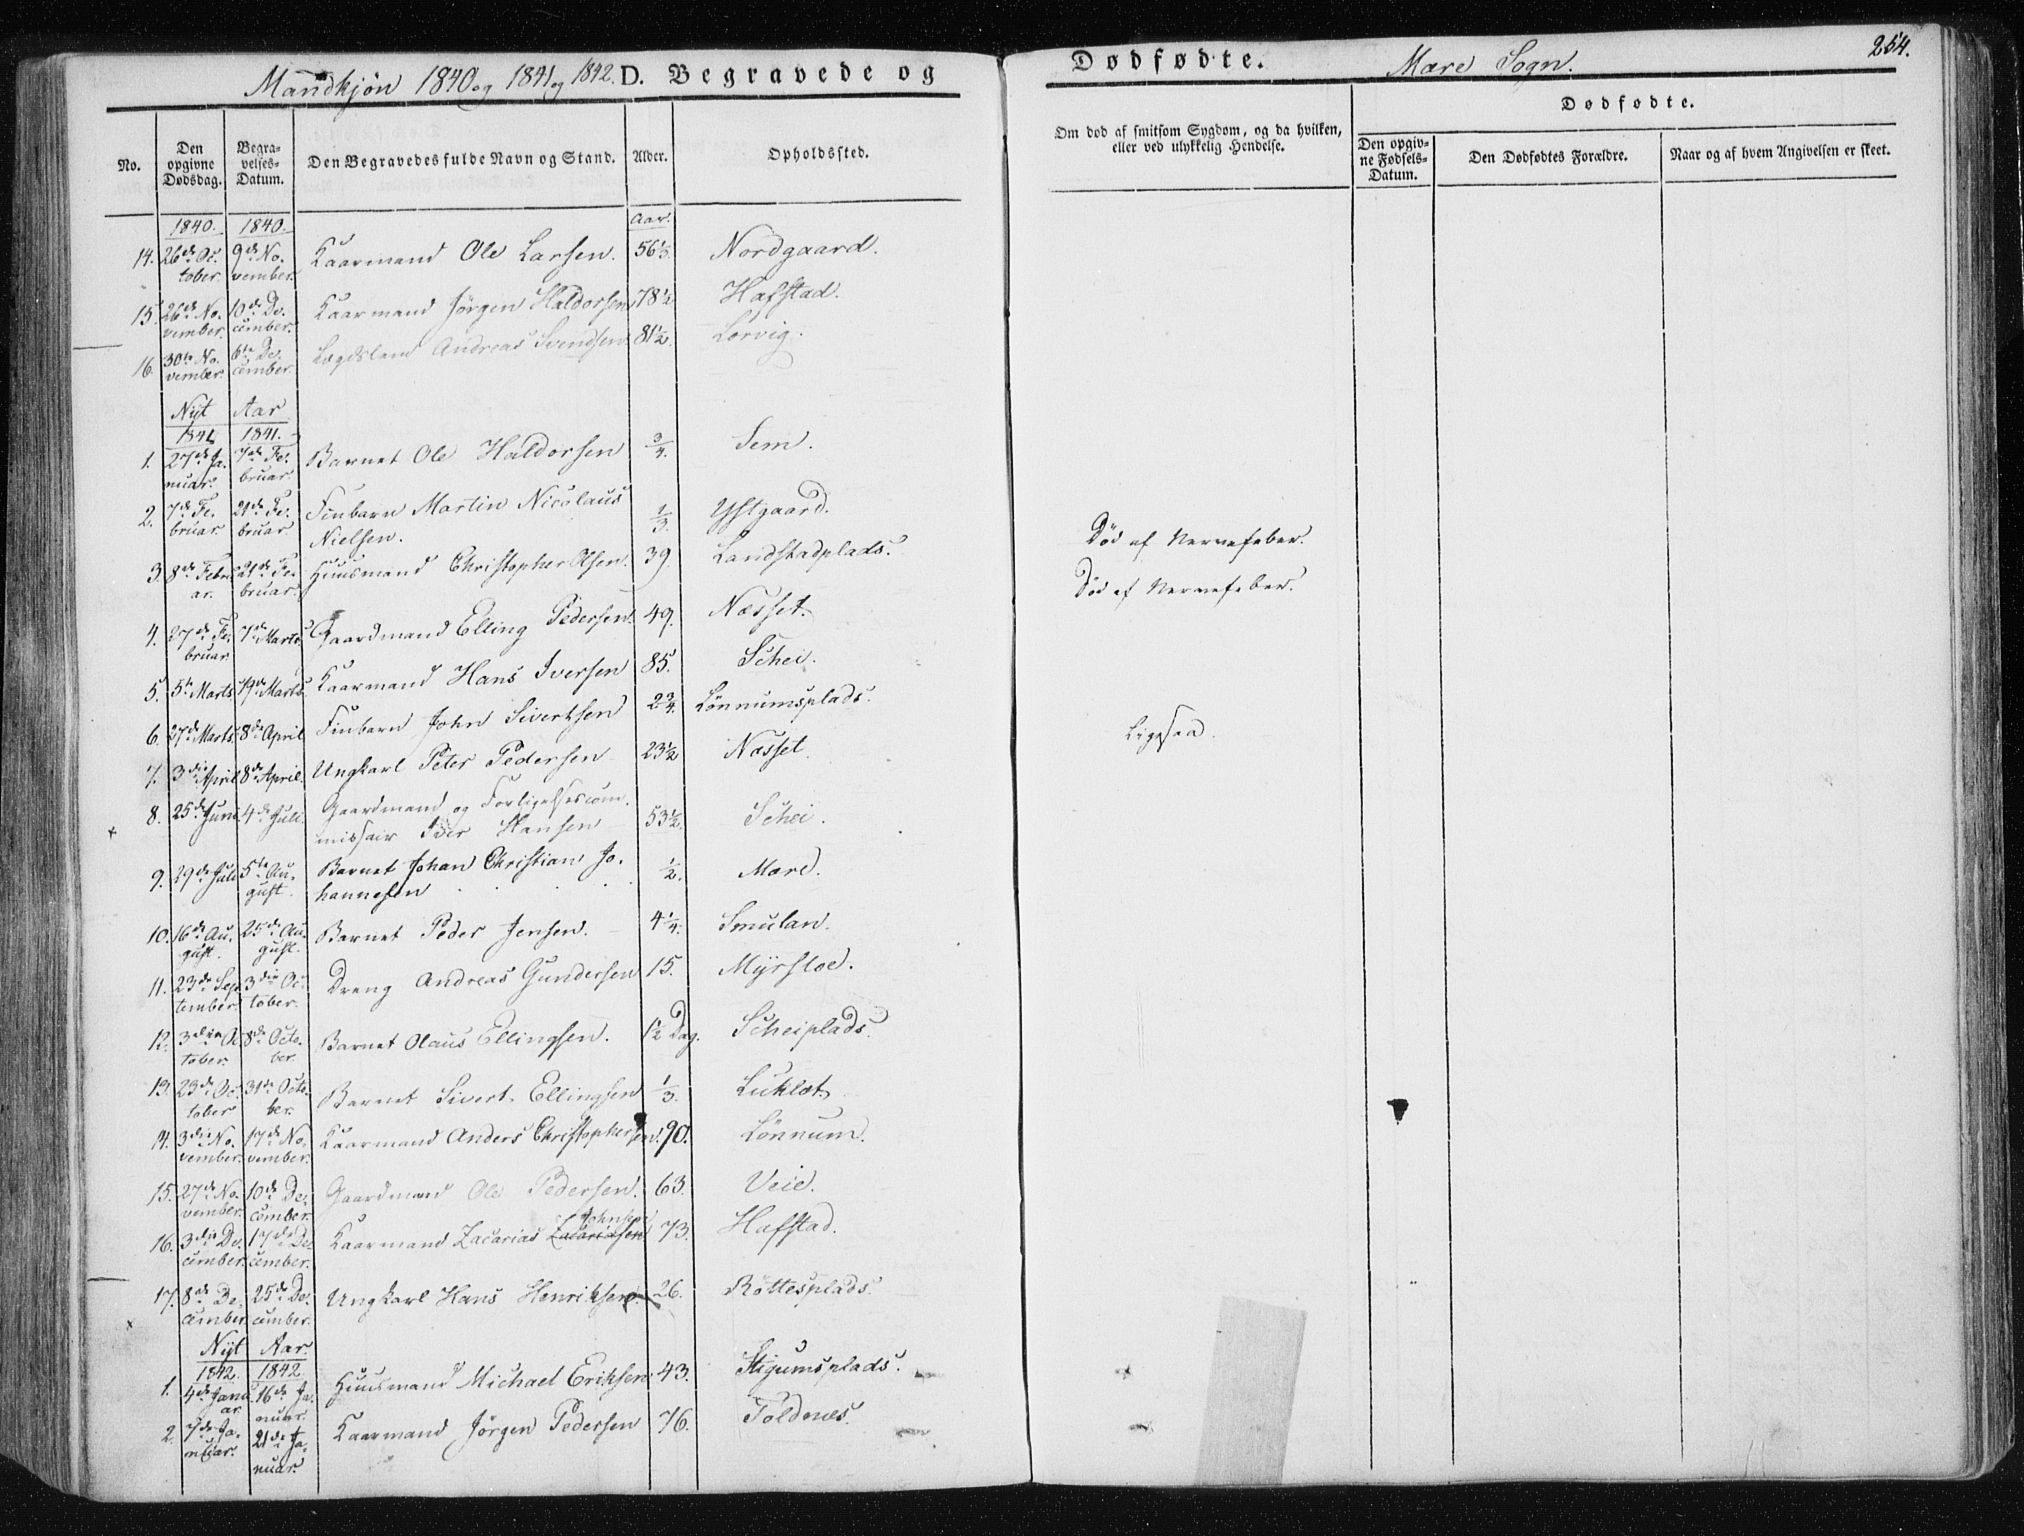 Mandkjøn 1840 og 1841 og 1842. D. Begravede og Dødfødte. Mære Sogn. 254.
No. Den opgivne Dødsdag. Begravelses-Datum. Den Begravedes fulde Navn og Stand. Alder. Opholdssted. Om død af smitsom Sygdom, og da hvilken, eller ved ulykkelig Hendelse. Dødfødte. Den opgivne Fødsels-Datum. Den Dødfødtes Forældre. Naar og af hvem Angivelsen er skeet.
1840. 1840. Aar.
14. 26de October. 9de November. Kaarmand Ole Larsen. 56 1/3. Nordgaard.
15. 26de November. 10de December. Kaarmand Jørgen Haldorsen 78 1/2 Hafstad.
16. 30te November. 6te December. Lægdslem Andreas Svendsen 81 1/2. Lorvig.
Nyt Aar
1841 1841.
1. 27de Januar. 7de Februar. Barnet Ole Haldorsen 3/4. Sem.
2. 7de Februar. 21de Februar Finbarn Martin Nicolaus
Nielsen. 1/3. Ystgaard.
3. 8de Februar. 21de Februar. Huusmand Christopher Olsen. 39. Landstadplads. Død af Nervefeber.
4. 27de Februar. 7de Marts Gaardmand Elling Pedersen. 49. Næsset. Død af Nervefeber.
5. 5te Marts 19de Marts Kaarmand Hans Iversen 85. Schei.
6. 27de Marts. 8de April Finbarn John Sivertsen 2 3/4. Lønnumsplads.
7. 3die April 8de April. Ungkarl Peter Pedersen 23 1/2 Næsset. Ligesaa.
8. 25de Juni 4de Juli Gaardmand og Forligelsescom-
missair Iver Hansen 53 1/2. Schei.
9. 29de Juli 5te August. Barnet Johan Christian Jo-
hannesen 1/2. Mære.
10. 16de August. 25de August. Barnet Peder Jensen. 4 1/4. Smulan.
11. 23de September. 3die October. Dreng Andreas Gundersen 15. Myrstoe.
12. 3die October. 8de October. Barnet Olaus Ellingsen. 1 1/2 Dag. Scheiplads.
13. 23de October 31de October. Barnet Sivert Ellingsen 1/3. Luklæt.
14. 3die November. 17de November. Kaarmand Anders Christophersen. 90. Lønnum.
15. 27de November. 10de December. Gaardmand Ole Pedersen. 63. Veie.
16. 3die December. 17de December. Kaarmand Zacarias Zacariasen Johnsen 73. Hafstad.
17. 8de December. 25de December. Ungkarl Hans Henriksen. 26. Röttesplads.
Nyt Aar.
1842. 1842
1. 4de Januar. 16de Januar. Huusmand Michael Eriksen 43. Stigumsplads.
2. 7de Januar. 21de Januar. Kaarmand Jørgen Pedersen 76. Toldnes.